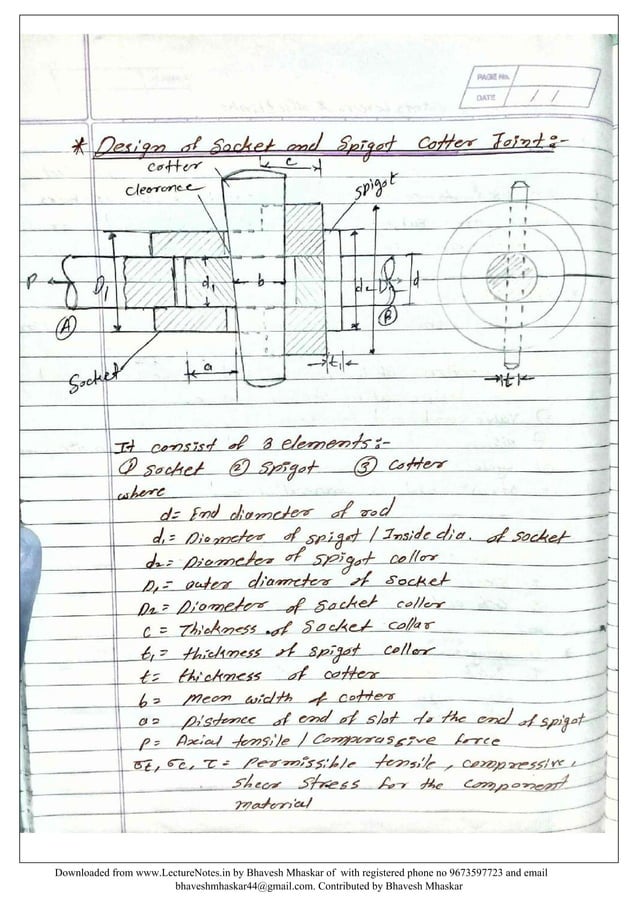 PAGE No.
DATE / /
* Design of Socket and Spigot Cotter Joint:-
cotter
c
clearance
spigot
P
D1
d1
b
d2
D2
d
A
B
a
t1
t
Socket
It consist of 3 elements:-
① Socket ② Spigot ③ Cotter
where
d= End diameter of rod
d1= Diameter of spigot / Inside dia. of socket
d2= Diameter of spigot collar
D1= outer diameter of socket
D2= Diameter of Socket collar
c = Thickness of Socket collar
t1= thickness of spigot collar
t= thickness of cotter
b= Mean width of cotter
a= Distance of end of slot to the end of spigot
P= Axial tensile / Comperassive force
σt, σc, τ = Permissible tensile, compressive,
shear stress for the component
material
Downloaded from www.LectureNotes.in by Bhavesh Mhaskar of with registered phone no 9673597723 and email
bhaveshmhaskar44@gmail.com. Contributed by Bhavesh Mhaskar